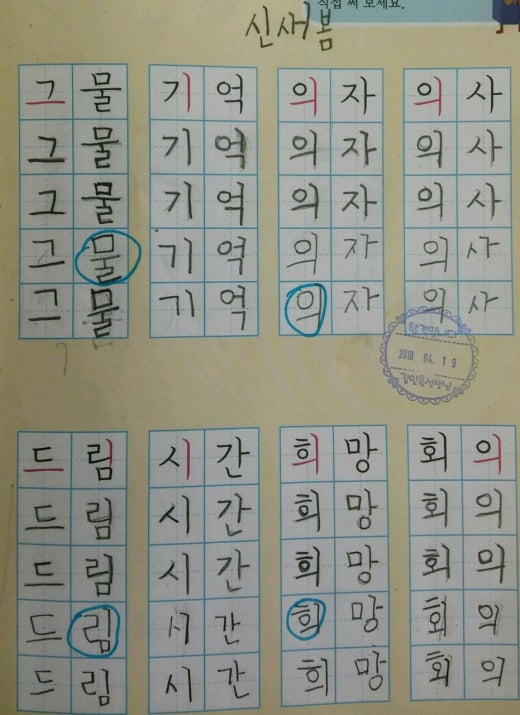 직접 써 보세요.
신새봄
그물 기억 의자 의사
그물 기억 의자 의사
그물 기억 의자 의사
그물 기억 의자 의사
그물 기억 의자 의사
합격입니다
2018. 04. 19
드림 시간 희망 회의
드림 시간 희망 회의
드림 시간 희망 회의
드림 시간 희망 회의
드림 시간 희망 회의